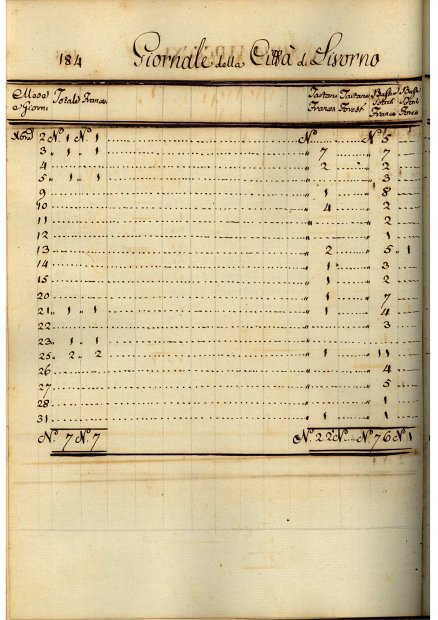 184 Giornale della Città di Livorno
Mese Totale Francia Tartane Tartane Basti Basti
e Giorni Francia Forest
2 Nº. 1 Nº. 1 Nº Nº 5
3 " 1 " 1 " 7 " 7
4 " 2 " 2
5 " 1 " 1 " 3
9 " 1 " 8
10 " 4 " 2
11 " 2
12 " 1
13 " 2 " 5 " 1
14 " 1 " 3
15 " 1 " 2
20 " 1 " 7
21 " 1 " 1 " 1 " 4
22 " 3
23 " 1 " 1
25 " 2 " 2 " 1 " 11
26 " 4
27 " 5
28 " 1
31 " 1 " 1
Nº. 7 Nº. 7 Nº. 22 Nº. Nº 76 Nº 1